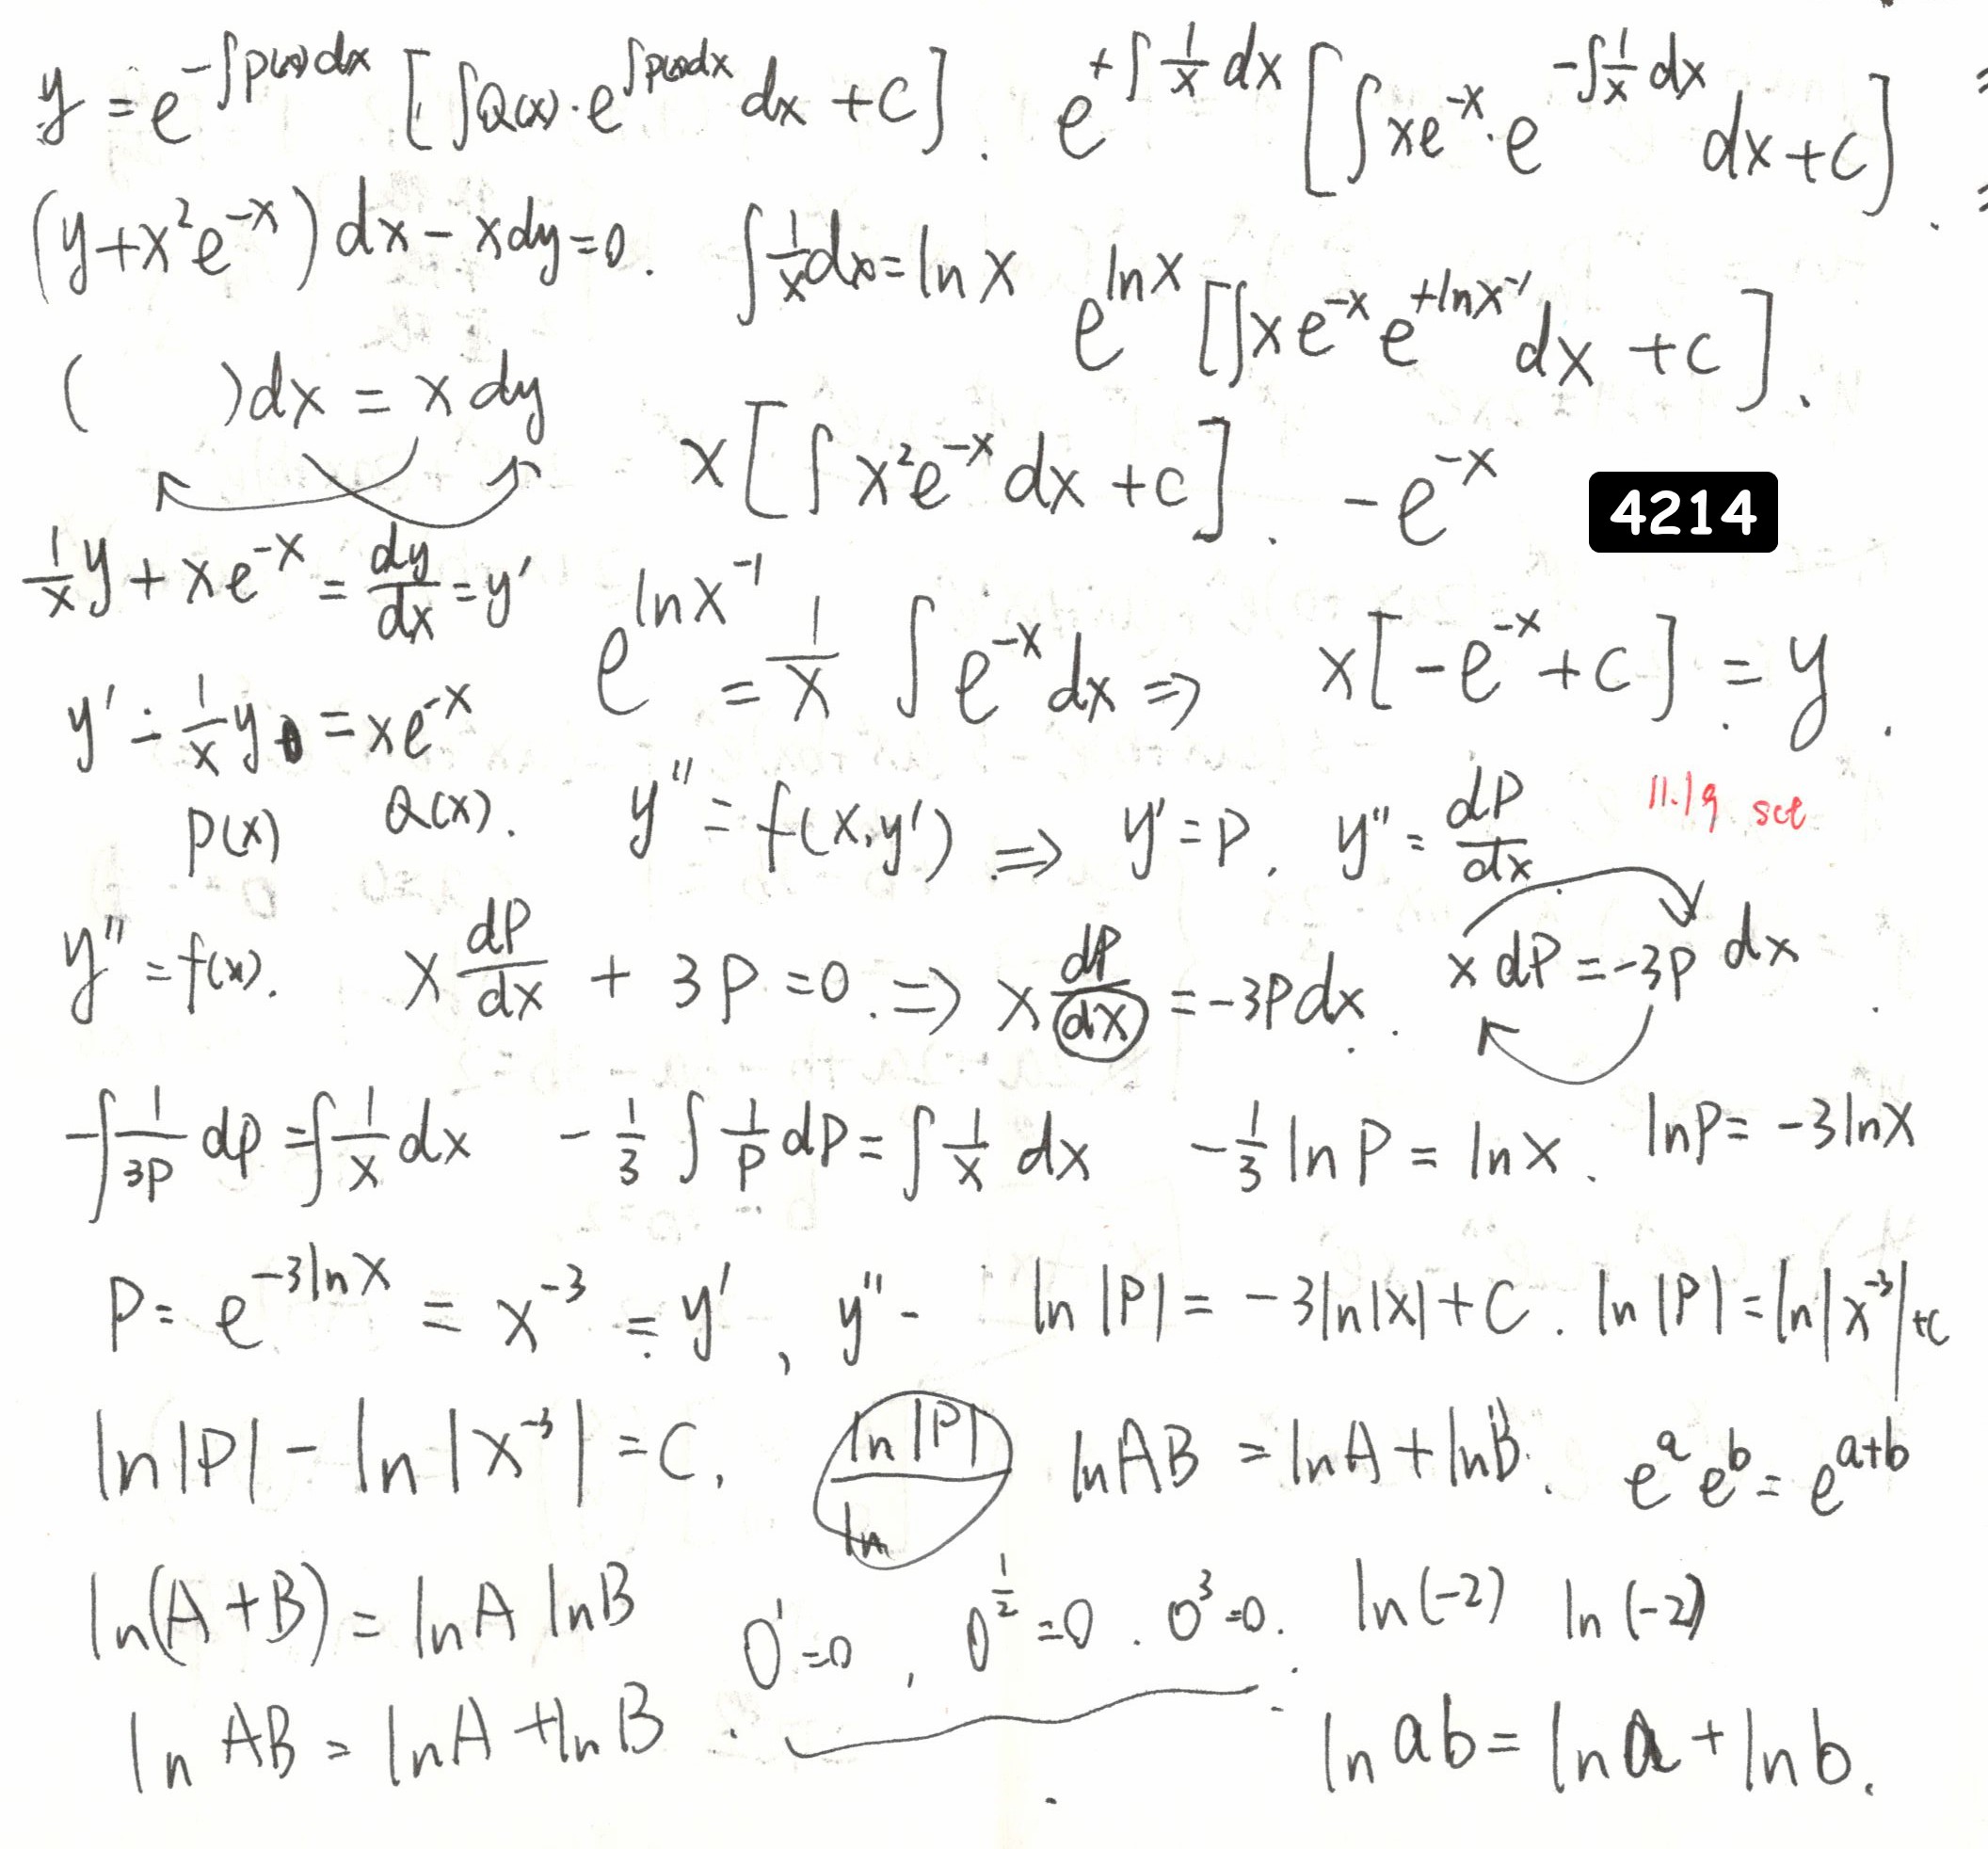 y = e^{-∫p(x)dx} [∫Q(x)·e^{∫p(x)dx} dx + c]. e^{+∫\frac{1}{x}dx} [∫xe^{-x}·e^{-∫\frac{1}{x}dx} dx + c].
(y+x²e^{-x})dx - xdy = 0. ∫\frac{1}{x}dx = ln x e^{ln x} [∫xe^{-x}e^{+ln x^{-1}} dx + c].
( )dx = x dy
x[∫x²e^{-x}dx + c]. -e^{-x} 4214
\frac{1}{x}y + xe^{-x} = \frac{dy}{dx} = y'
e^{ln x^{-1}} = \frac{1}{x} ∫e^{-x}dx ⇒ x[-e^{-x} + c] = y.
y' - \frac{1}{x}y = xe^{-x}
p(x) Q(x). y'' = f(x,y') ⇒ y' = p, y'' = \frac{dp}{dx} 11.19 sct
y'' = f(x). x\frac{dp}{dx} + 3p = 0. ⇒ x\frac{dp}{dx} = -3pdx. x dp = -3p dx.
-∫\frac{1}{3p}dp = ∫\frac{1}{x}dx -\frac{1}{3}∫\frac{1}{p}dp = ∫\frac{1}{x}dx -\frac{1}{3}ln p = ln x. ln p = -3ln x
p = e^{-3ln x} = x^{-3} = y', y'' - ln|p| = -3ln|x| + C. ln|p| = ln|x^{-3}| + c
ln|p| - ln|x^{-3}| = C, \frac{ln|p|}{ln} ln AB = ln A + ln B. e^a e^b = e^{a+b}
ln(A+B) = ln A ln B 0^1 = 0, 0^{\frac{1}{2}} = 0. 0^3 = 0. ln(-2) ln(-2)
ln AB = ln A + ln B. ln ab = ln a + ln b.